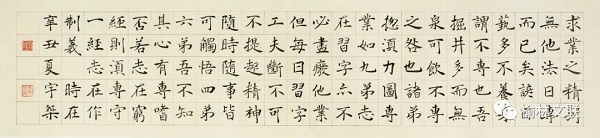 求業之精別
無他法曰專
而已矣諺曰
藝多不養身
謂不專也吾
掘井多而無
泉可飲不專
之咎也諸弟
揔須力圖專
業如九弟志
在習字亦不
必盡癈他業
但每日習字
工夫斷不可
不提起精神
隨時隨事皆
可觸悟四弟
六弟吾不知
其心有專嗜
否若志在窮
經則須專守
一經志在作
制義 時在
辛丑夏宇桀
榆林文联